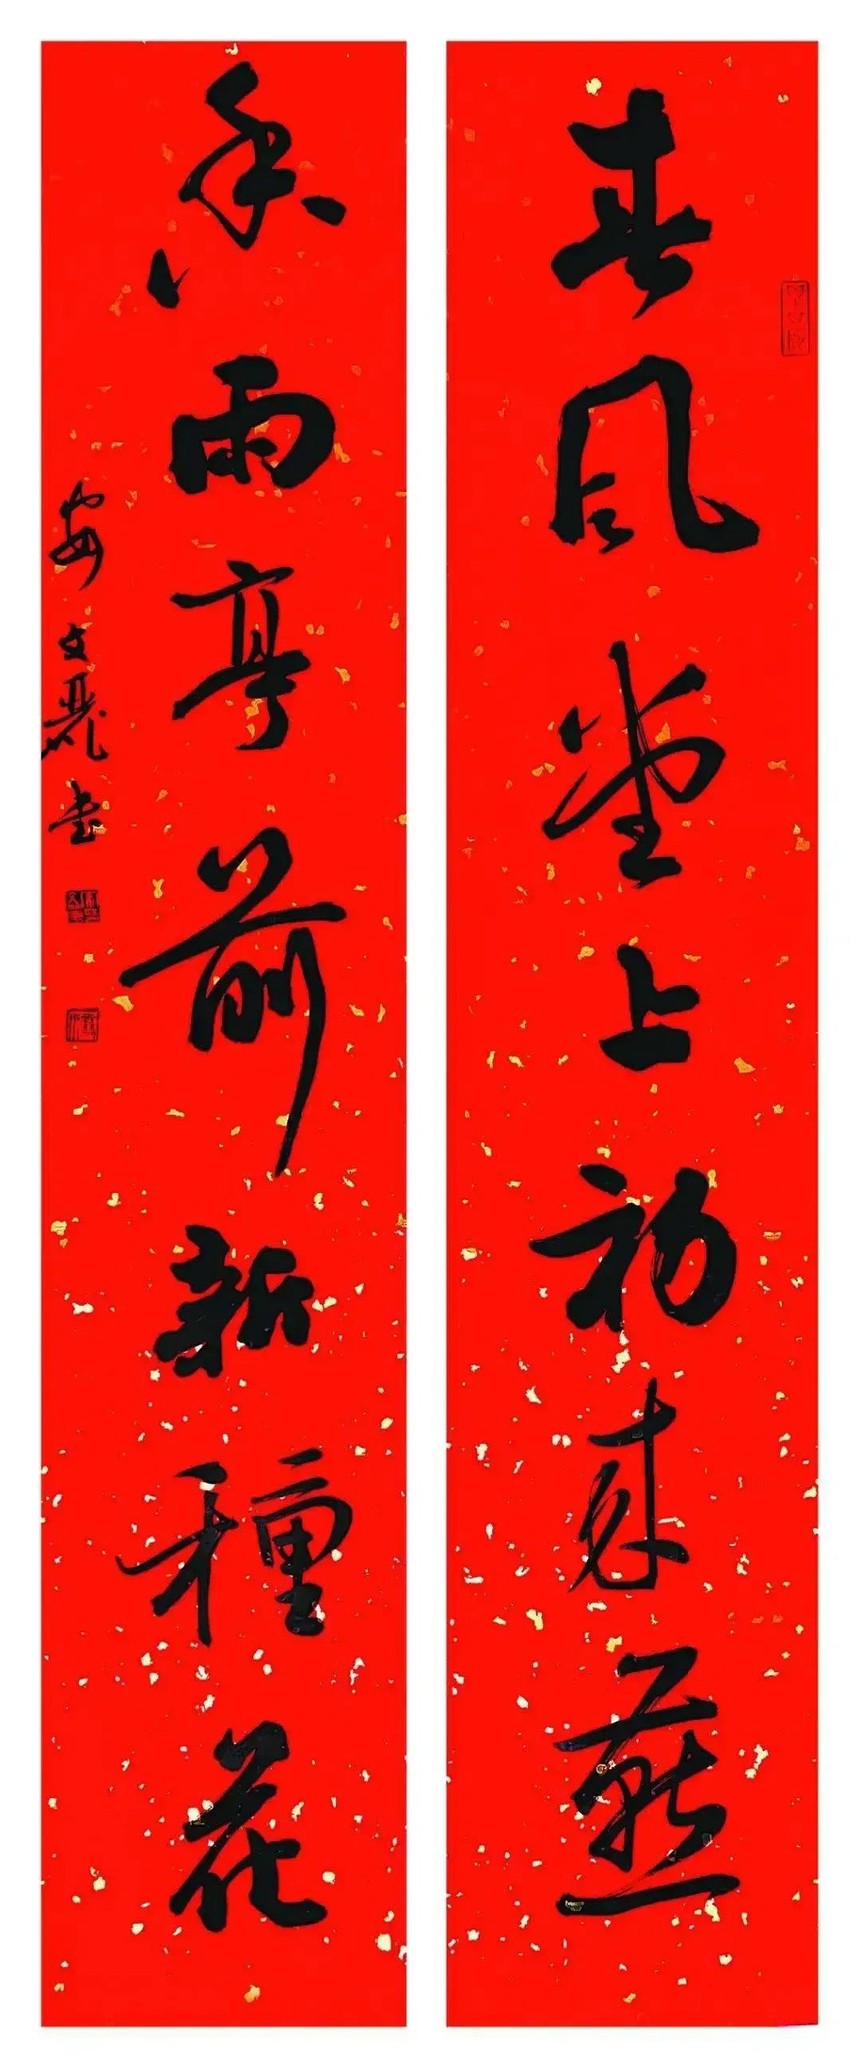 春風堂上初來燕
香雨亭前新種花
安文麗书